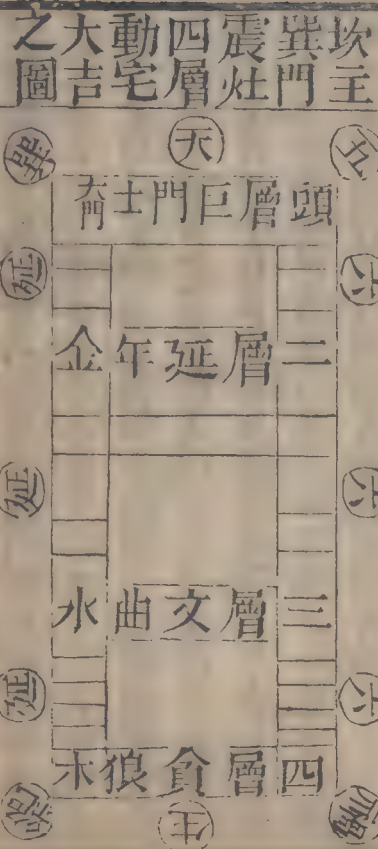 坎主
巽門
震灶
四層
動宅
大吉
之圖
五
天
巽
頭層巨門土大門
六
延
二層延年金
六
延
三層文曲水
六
延
四層貪狼木
禍
生
絕